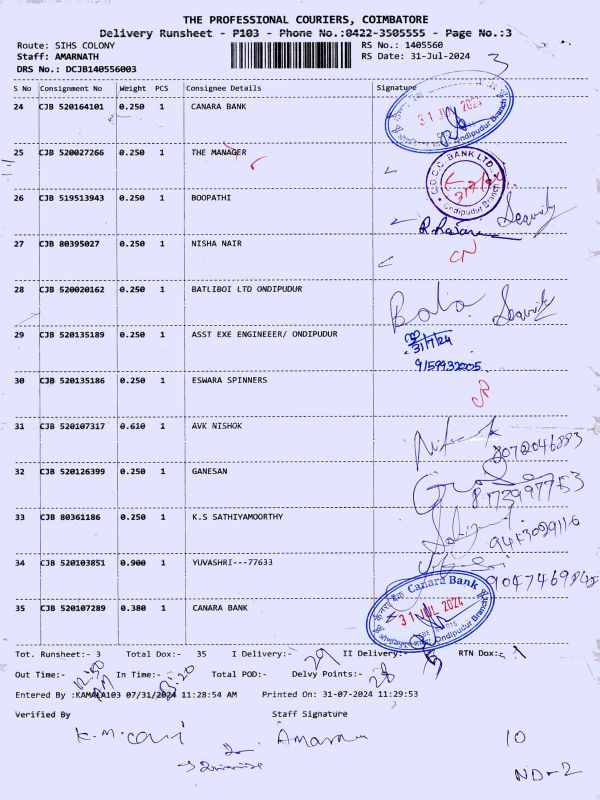 THE PROFESSIONAL COURIERS, COIMBATORE
Delivery Runsheet - P103 - Phone No.:0422-3505555 - Page No.:3
Route: SIHS COLONY RS No.: 1405560
Staff: AMARNATH RS Date: 31-Jul-2024
DRS No.: DCJB140556003
3
S No Consignment No Weight PCS Consignee Details Signature
24 CJB 520164101 0.250 1 CANARA BANK
31 JUL 2024
Ondipudur Branch
25 CJB 520027266 0.250 1 THE MANAGER
C.D.C.C. BANK LTD.,
Ondipudur Branch
26 CJB 519513943 0.250 1 BOOPATHI
Security
27 CJB 80395027 0.250 1 NISHA NAIR
28 CJB 520020162 0.250 1 BATLIBOI LTD ONDIPUDUR
Bala Security
29 CJB 520135189 0.250 1 ASST EXE ENGINEEER/ ONDIPUDUR
31/7/24
9159932005
30 CJB 520135186 0.250 1 ESWARA SPINNERS
31 CJB 520107317 0.610 1 AVK NISHOK
8072046883
32 CJB 520126399 0.250 1 GANESAN
8173997753
33 CJB 80361186 0.250 1 K.S SATHIYAMOORTHY
9443029116
34 CJB 520103851 0.900 1 YUVASHRI---77633
35 CJB 520107289 0.380 1 CANARA BANK
केनरा बैंक Canara Bank
31 JUL 2024
Ondipudur Branch
Tot. Runsheet:- 3 Total Dox:- 35 I Delivery:- 29 II Delivery:- RTN Dox:-
Out Time:- In Time:- Total POD:- Delvy Points:- 28
Entered By :KAMALA103 07/31/2024 11:28:54 AM Printed On: 31-07-2024 11:29:53
Verified By Staff Signature
10
ND-2